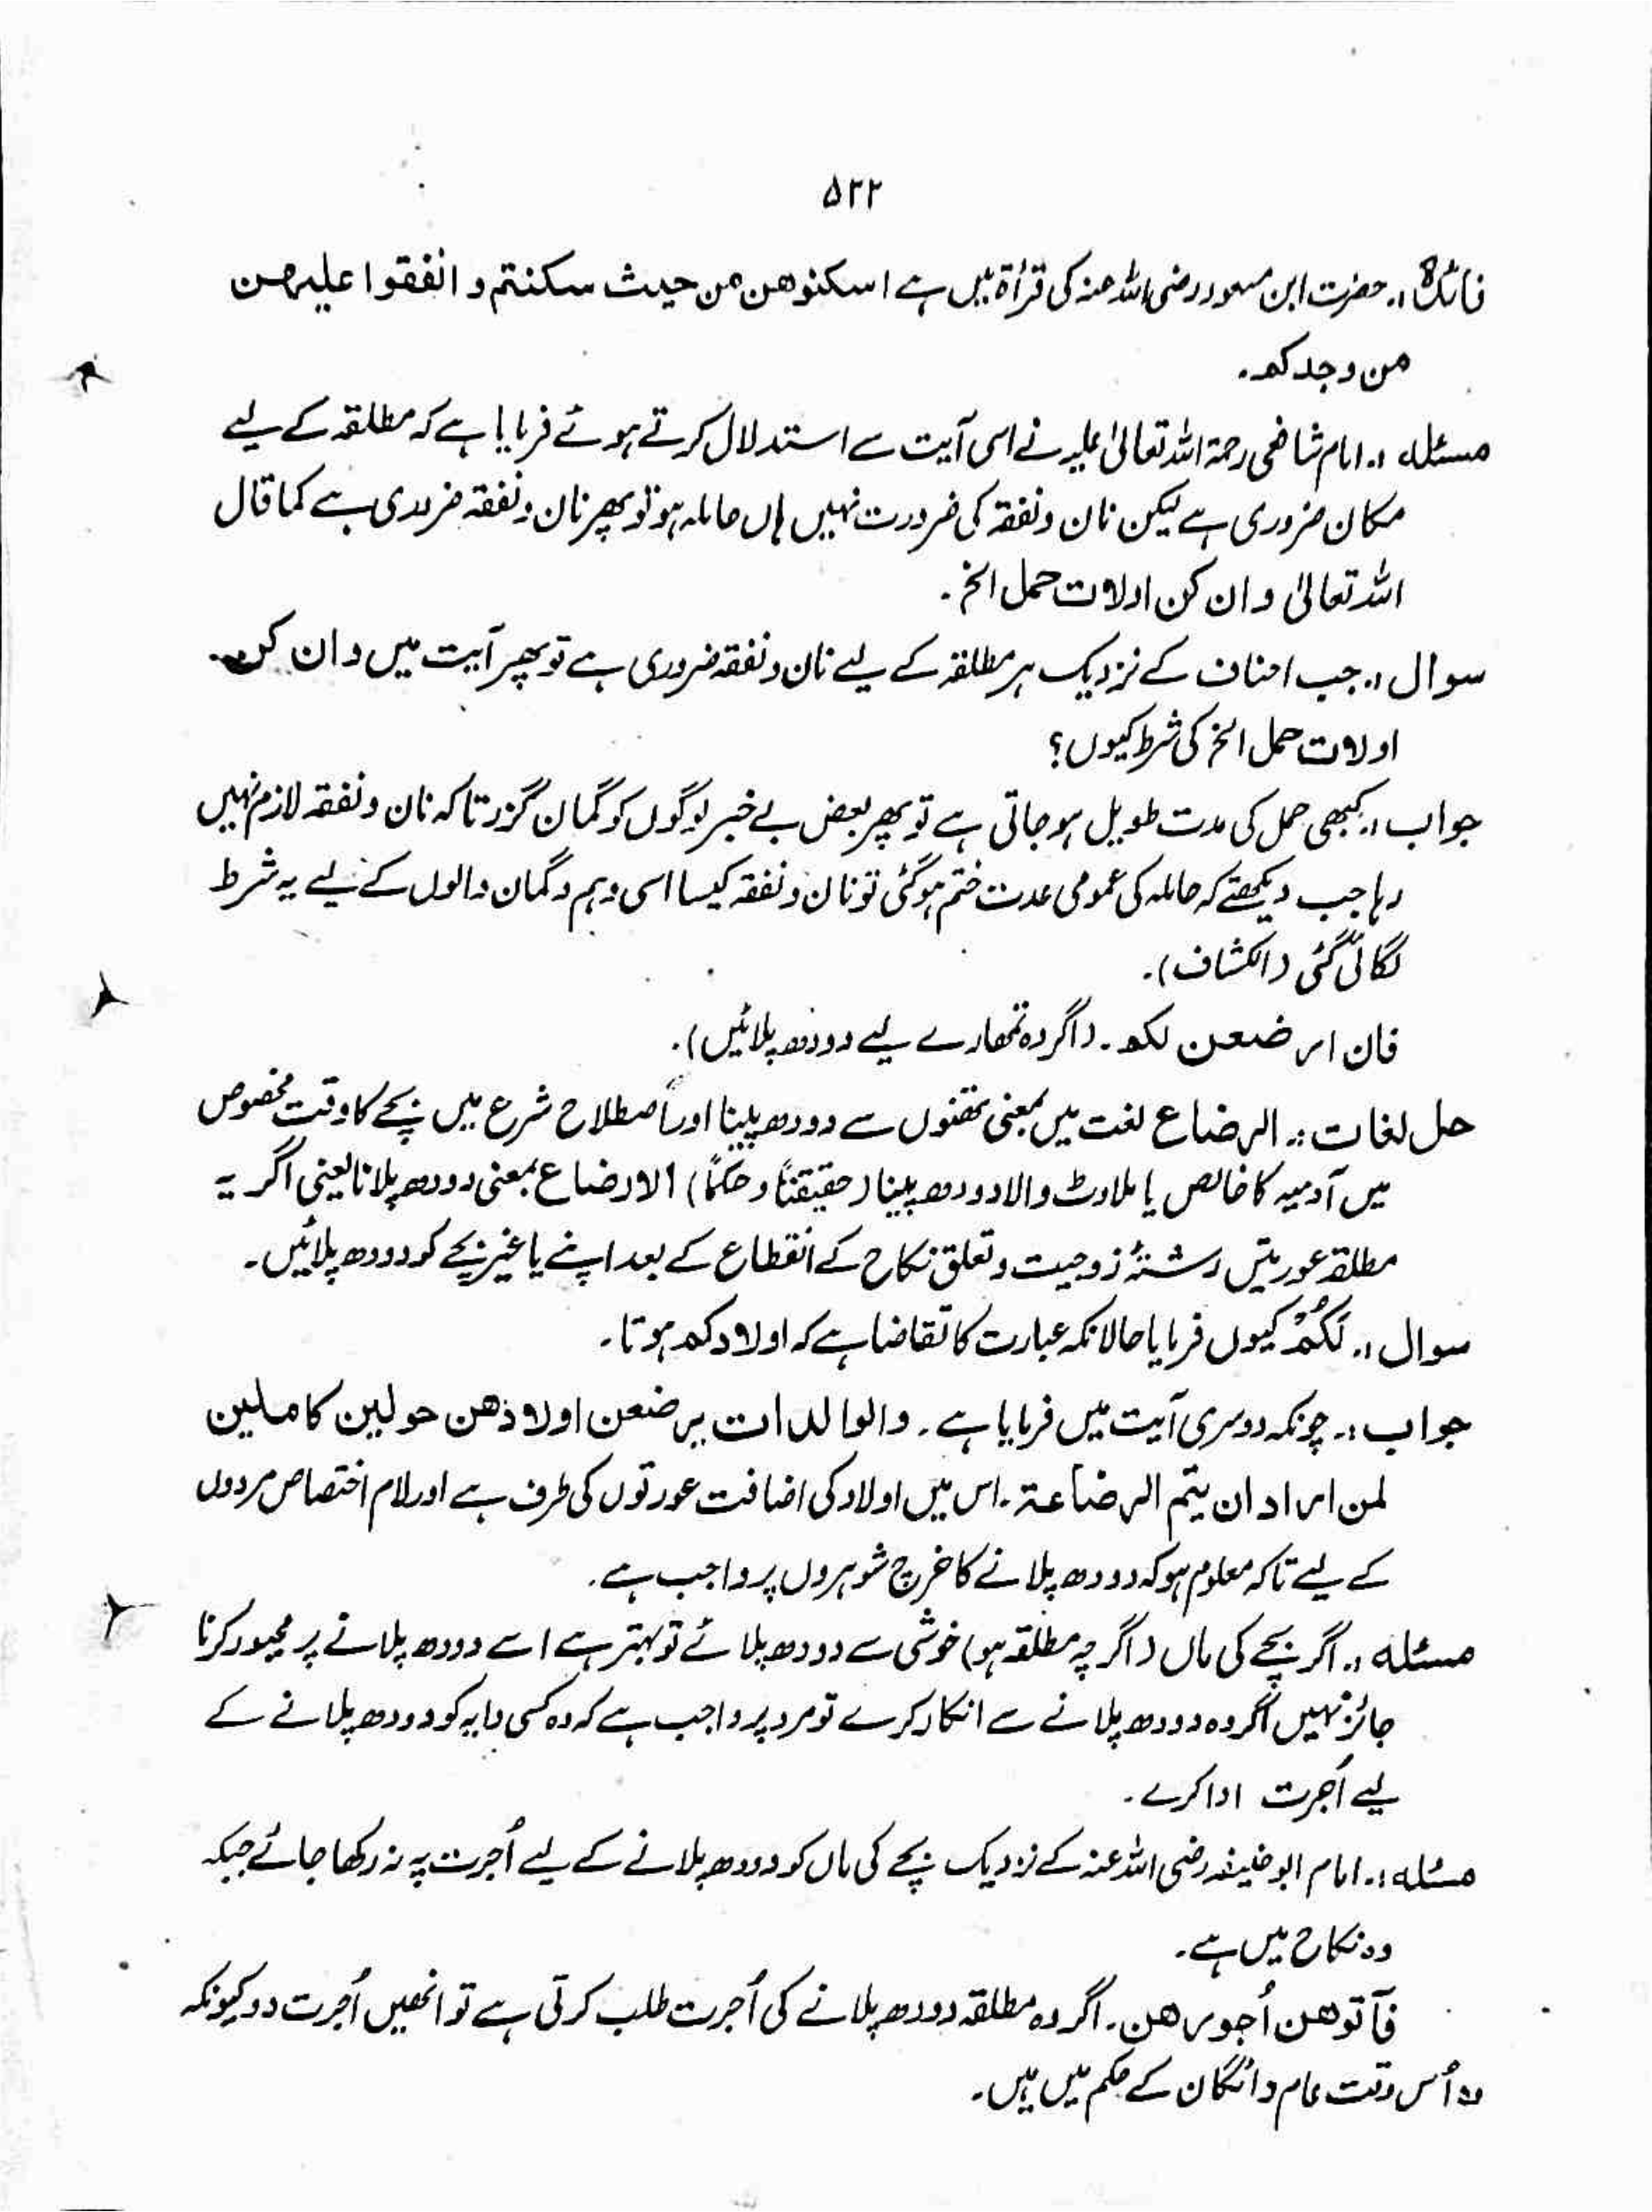 ۵۲۲
فائدہ :۔ حضرت ابن مسعود رضی اللہ عنہ کی قرأۃ میں ہے اسکنوھن من حیث سکنتم و انفقوا علیھن
من وجدکم۔
مسئلہ :۔ امام شافعی رحمۃ اللہ تعالیٰ علیہ نے اسی آیت سے استدلال کرتے ہوئے فرمایا ہے کہ مطلقہ کے لیے
مکان ضروری ہے لیکن نان و نفقہ کی ضرورت نہیں ہاں حاملہ ہو تو پھر نان و نفقہ ضروری ہے کما قال
اللہ تعالیٰ و ان کن اولات حمل الخ۔
سوال :۔ جب احناف کے نزدیک ہر مطلقہ کے لیے نان و نفقہ ضروری ہے تو پھر آیت میں و ان کن
اولات حمل الخ کی شرط کیوں؟
جواب :۔ کبھی حمل کی مدت طویل ہو جاتی ہے تو پھر بعض بے خبر لوگوں کو گمان گزرتا کہ نان و نفقہ لازم نہیں
رہا جب دیکھتے کہ حاملہ کی عمومی عدت ختم ہو گئی تو نان و نفقہ کیسا اسی وہم و گمان والوں کے لیے یہ شرط
لگائی گئی (الکشاف)۔
فان ارضعن لکم۔ (اگر وہ تمہارے لیے دودھ پلائیں)۔
حل لغات :۔ الرضاع لغت میں بمعنی تھنوں سے دودھ پینا اور اصطلاح شرع میں بچے کا وقت مخصوص
میں آدمیہ کا خالص یا ملاوٹ والا دودھ پینا (حقیقتاً و حکماً) الارضاع بمعنی دودھ پلانا یعنی اگر یہ
مطلقہ عورتیں رشتۂ زوجیت و تعلق نکاح کے انقطاع کے بعد اپنے یا غیر بچے کو دودھ پلائیں۔
سوال :۔ لَکُمْ کیوں فرمایا حالانکہ عبارت کا تقاضا ہے کہ اولادکم ہوتا۔
جواب :۔ چونکہ دوسری آیت میں فرمایا ہے۔ والوالدات یرضعن اولادھن حولین کاملین
لمن اراد ان یتم الرضاعۃ۔ اس میں اولاد کی اضافت عورتوں کی طرف ہے اور لام اختصاص مردوں
کے لیے تاکہ معلوم ہو کہ دودھ پلانے کا خرچ شوہروں پر واجب ہے۔
مسئلہ :۔ اگر بچے کی ماں (اگرچہ مطلقہ ہو) خوشی سے دودھ پلائے تو بہتر ہے اسے دودھ پلانے پر مجبور کرنا
جائز نہیں اگر وہ دودھ پلانے سے انکار کرے تو مرد پر واجب ہے کہ وہ کسی دایہ کو دودھ پلانے کے
لیے اُجرت ادا کرے۔
مسئلہ :۔ امام ابوحنیفہ رضی اللہ عنہ کے نزدیک بچے کی ماں کو دودھ پلانے کے لیے اُجرت پہ نہ رکھا جائے جبکہ
وہ نکاح میں ہے۔
فآتوھن اُجورھن۔ اگر وہ مطلقہ دودھ پلانے کی اُجرت طلب کرتی ہے تو انھیں اُجرت دو کیونکہ
وہ اُس وقت عام دائگان کے حکم میں ہیں۔